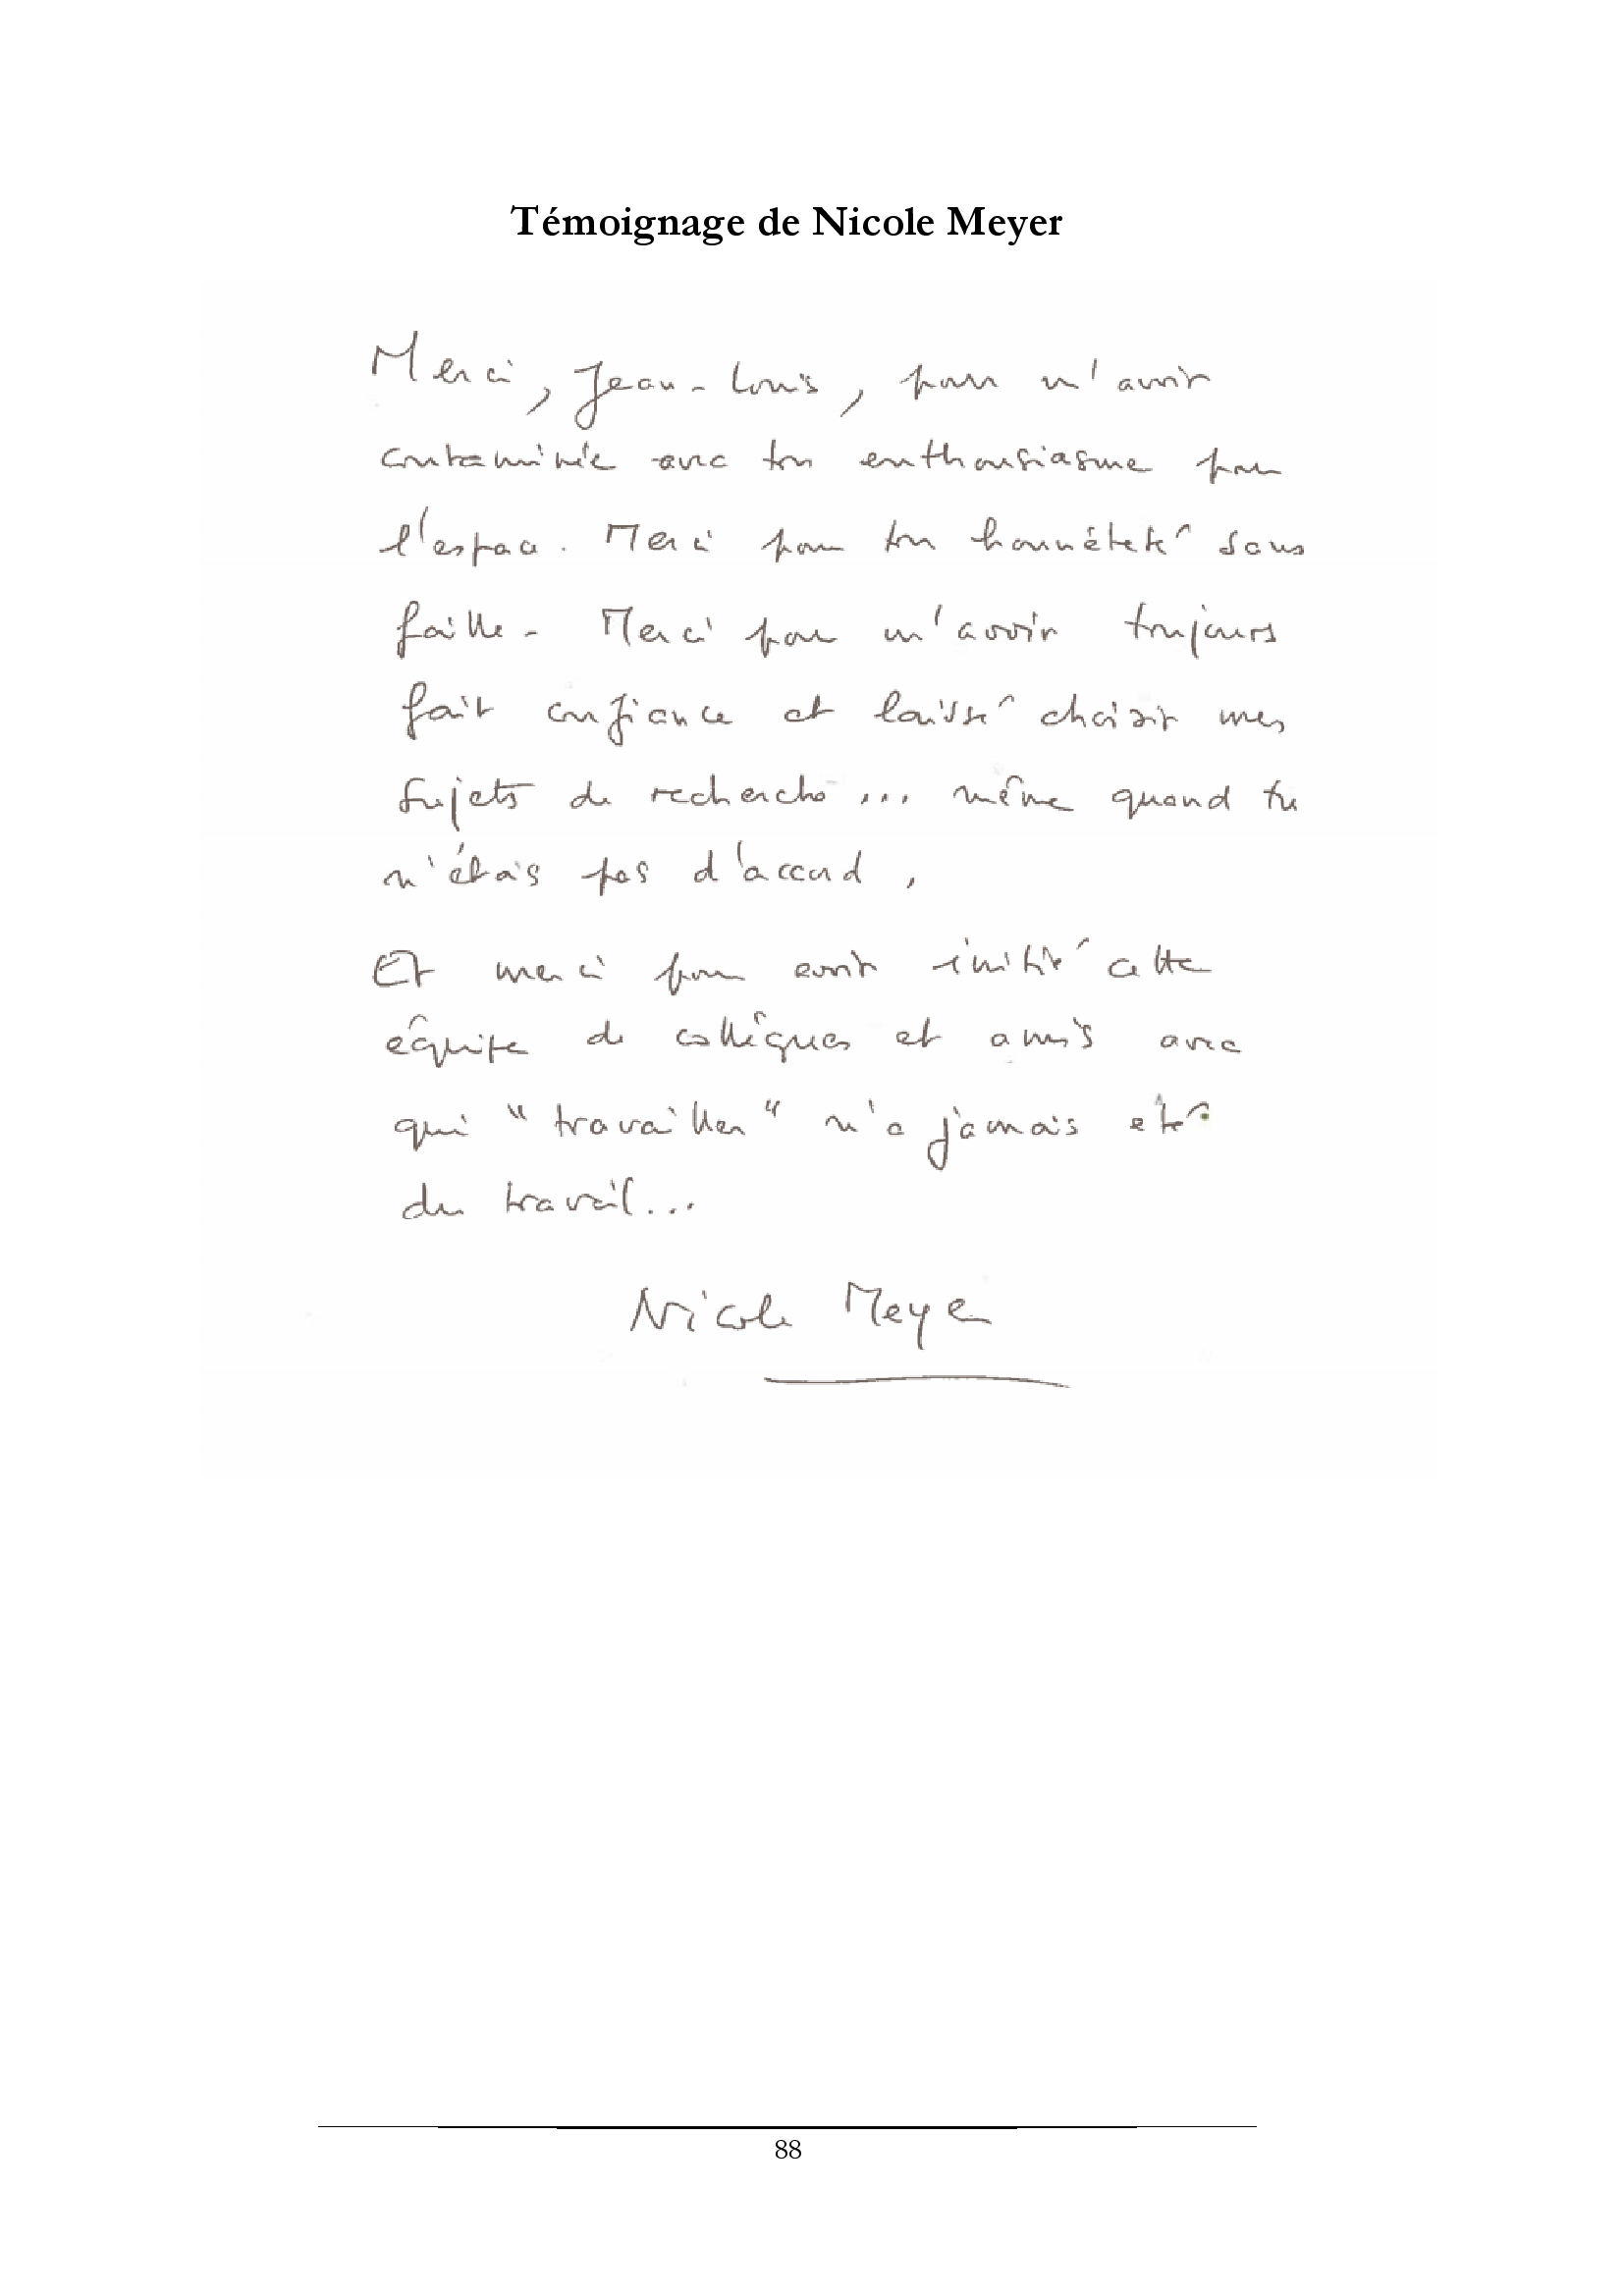 Témoignage de Nicole Meyer
Merci, Jean-Louis, pour m'avoir
contaminée avec ton enthousiasme pour
l'espace. Merci pour ton honnêteté sans
faille. Merci pour m'avoir toujours
fait confiance et laissé choisir mes
sujets de recherche ... même quand tu
n'étais pas d'accord.
Et merci pour avoir initié cette
équipe de collègues et amis avec
qui "travailler" n'a jamais été
du travail...
Nicole Meyer
88